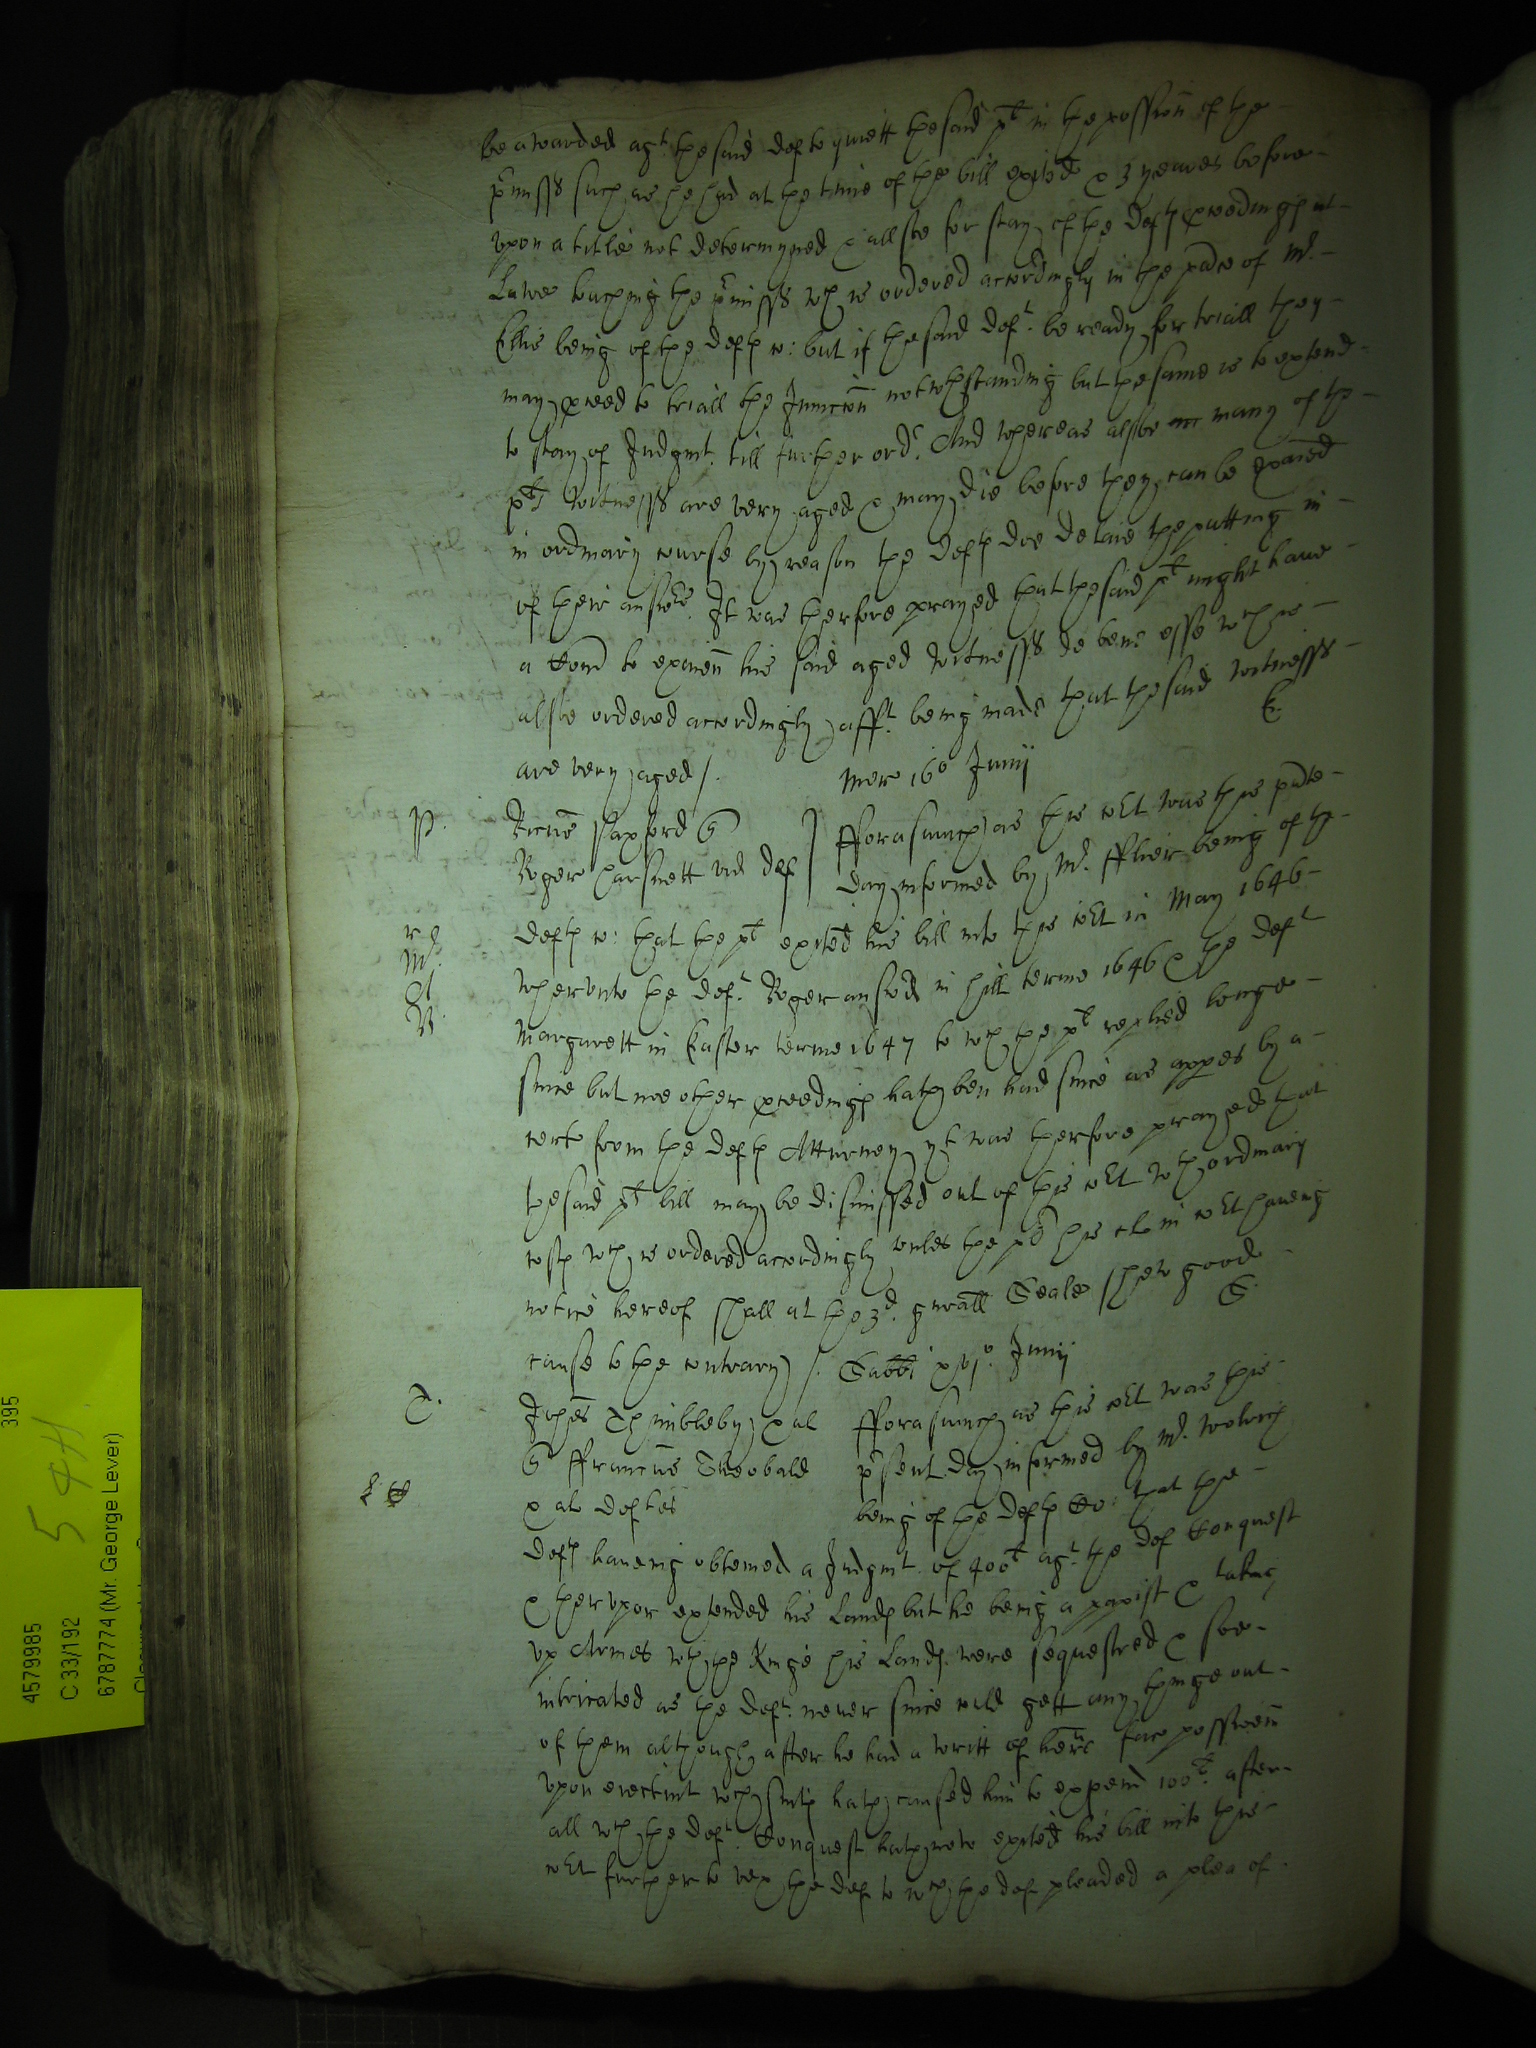 be awarded agt. the said deft to quiett the said plt in the possion of the
p̃miss̃s such as he had at the time of the bill exited & 3 yeares before
vpon a title not determyned & allsoe for stay of the Defts p̱ceedings at
Lawe touching the p̃miss̃s wch is ordered accordingly in the p̃nce of Mr.
Ellis being of the Defts c: but if the said deft. be ready for triall they
may p̱ceed to triall the Iniunccon notwthstanding but the same is to extend
to stay of Judgmt. till further ordr. And whereas alsoe many of the
plts witness̃s are very aged & may die before they can be exãied
in ordinary course by reason the Defts doe delaie the putting in
of their answrs. It was therfore prayed that the said plt might haue
a Com̃ to exam̃n his said aged witness̃s de bene esse wch is
alsoe ordered accordingly afft. being made that the said witness̃s
are very aged /.
E.
Mer 16o Junij
P.
Ricus Paxford q
Roger Hasnett vid def
fforasmuch as this cort was this p̃nte
day informed by Mr. ffisher being of the
defts c: that the plt exited his bill into this cort in May 1646
r e
Mr.
wherunto the deft. Roger answd in Hill terme 1646 & the deft
ct
R
Margarett in Easter terme 1647 to wch the plt replied longe
since but noe other p̱ceedings hath ben had since as appes by a
cert from the defts Atturney yt was therfore prayed that
the said plt bill may be dismissed out of this cort wth ordinary
costs wch is ordered accordingly vnles the plt his clr in cort haueing
notice hereof shall at the 3d. gnrall Seale shew good
cause to the contrary /.
S.
Sabbi xvjo. Junij
T.
Johes Thimbleby & al
q ffrancus Theobald
& al deftes
fforasmuch as this cort was this
p̃sent day informed by Mr. Wolrich
being of the defts Co: that the
L: C
defts haueing obteined a Judgmt. of 400l agt. the def Conquest
& thervpon extended his Lands but he being a papist & taking
vp Armes wth the Kinge his Lands were sequestred & soe
intricated as the deft. neuer since could gett any thinge out
of them although after he had a writt of here fac possionem
vpon eiectmt wch suits hath caused him to expend 100l. after
all wch the deft. Conquest hath now exited his bill into this
cort further to vex the def to wch the def pleaded a plea of.
395
54H
4579985
C 33/192
6787774 (Mr. George Lever)